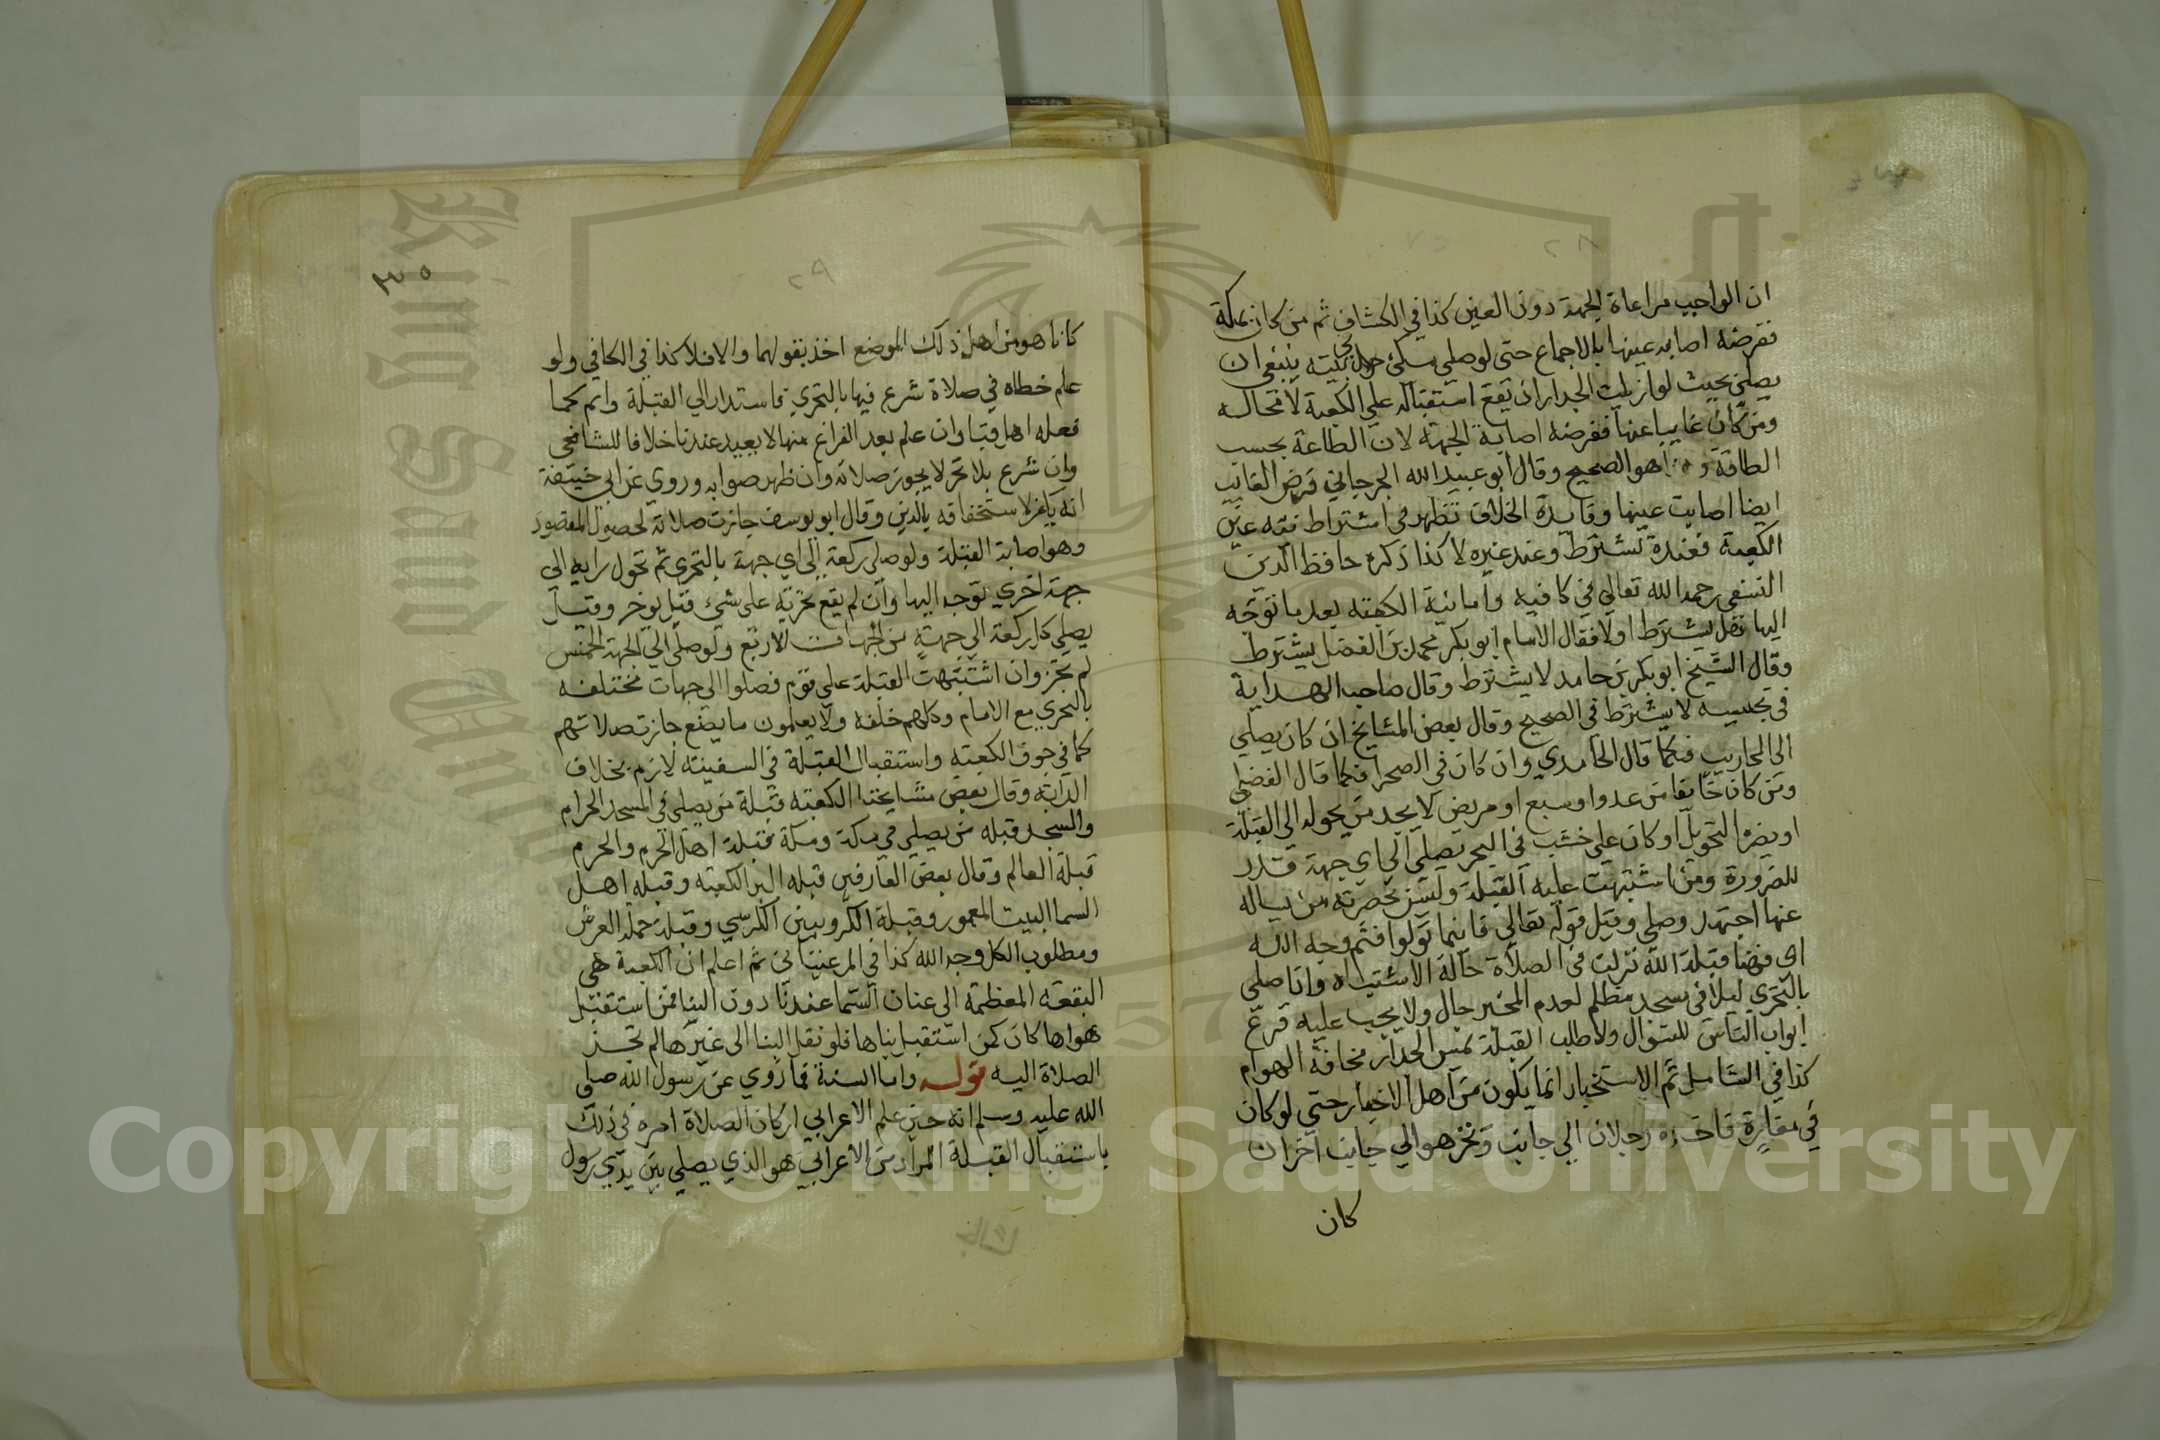 ان الواجب مراعاة الجهة دون العين كذا في الكشاف ثم من كان بمكة
ففرضه اصابه عينها بالاجماع حتى لو صلي مكي في بيته ينبغي ان
يصلي بحيث لو ازيلت الجدار ان يقع استقباله علي الكعبة لا محاله
ومن كان غايبا عنها ففرضه اصابة الجهة لان الطاعة بحسب
الطاقة هو الصحيح وقال ابو عبد الله الجرجاني فرض الغايب
ايضا اصابت عينها وفايدة الخلاف تظهر في اشتراط نيه عين
الكعبة فعنده تشترط وعند غيره لا كذا ذكره حافظ الدين
النسفي رحمه الله تعالي في كافيه واما نية الكعبه بعد ما توجه
اليها هل يشترط اولا فقال الامام ابو بكر محمد بن الفضل يشترط
وقال الشيخ ابو بكر بن حامد لا يشترط وقال صاحب الهداية
في تجنيسه لا يشترط في الصحيح وقال بعض المشايخ ان كان يصلي
الى المحاريب فكما قال الحامدي وان كان في الصحرا فكما قال الفضلي
ومن كان خايفا من عدوا وسبع او مريض لا يجد من يحوله الى القبلة
او يضره التحويل او كان على خشب في البحر يصلي الي اي جهة قدر
للضرورة ومن اشتبهت عليه القبلة وليس بحضرته من يساله
عنها اجتهد وصلي وقيل قوله تعالي فاينما تولوا فثم وجه الله
اي فهنا قبلة الله نزلت في الصلاة حالة الاشتباه واذا صلي
بالتحري ليلا في مسجد مظلم لعدم المخبر جاز ولا يجب عليه قرع
ابواب الناس للسؤال ولا طلب القبلة بمس الجدار مخافة الهوام
كذا في الشامل ثم الاستخبار انما يكون من اهل الاخبار حتي لو كان
في مفازة فاخبره رجلان الي جانب وتحرهو الي جانب اخر ان
كان
كانا هو من اهل ذلك الموضع اخذ بقولهما والا فلا كذا في الكافي ولو
علم خطاه في صلاة شرع فيها بالتحري فاستدار الي القبلة واتم كما
فعله اهل قبا وان علم بعد الفراغ منها لا يعيد عندنا خلافا للشافعي
وان شرع بلا تحر لا يجوز صلاته وان ظهر صوابه وروي عن ابي حنيفة
انه يكفر لاستخفافه بالدين وقال ابو يوسف جازت صلاته لحصول المقصود
وهو اصابة القبلة ولو صلي ركعة الي اي جهة بالتحري ثم تحول رايه الي
جهة اخري توجه اليها وان لم يقع تحريه على شيء قيل يوخر وقيل
يصلي كل ركعة الي جهة من الجهات الاربع ولو صلي الي الجهة الخمس
لم تجز وان اشتبهت القبلة علي قوم فصلوا الي جهات مختلفه
بالتحري مع الامام وكلهم خلفه ولا يعلمون ما يصنع جازت صلاتهم
كما في جوف الكعبه واستقبال القبلة في السفينه لازم بخلاف
الدابه وقال بعض مشايخنا الكعبه قبلة من يصلي في المسجد الحرام
والمسجد قبله من يصلي في مكة ومكة قبلة اهل الحرم والحرم
قبلة العالم وقال بعض العارفين قبله البر الكعبه وقبله اهل
السما البيت المعمور وقبلة الكروبيين الكرسي وقبلة حملة العرش
ومطلوب الكل وجه الله كذا في المرغيناني ثم اعلم ان الكعبة هي
البقعه المعظمة الي عنان السما عندنا دون البنا فمن استقبل
هواها كان كمن استقبل بناها فلو نقل البنا الى غيرها لم تجز
الصلاة اليه قوله واما السنة فما روي عن رسول الله صلي
الله عليه وسلم انه حين علم الاعرابي اركان الصلاة امره في ذلك
باستقبال القبلة المراد من الاعرابي هو الذي يصلي بين يدي رسول
٣٥
٢٩
٢٨
Copyright © King Saud University
King Saud University
1957